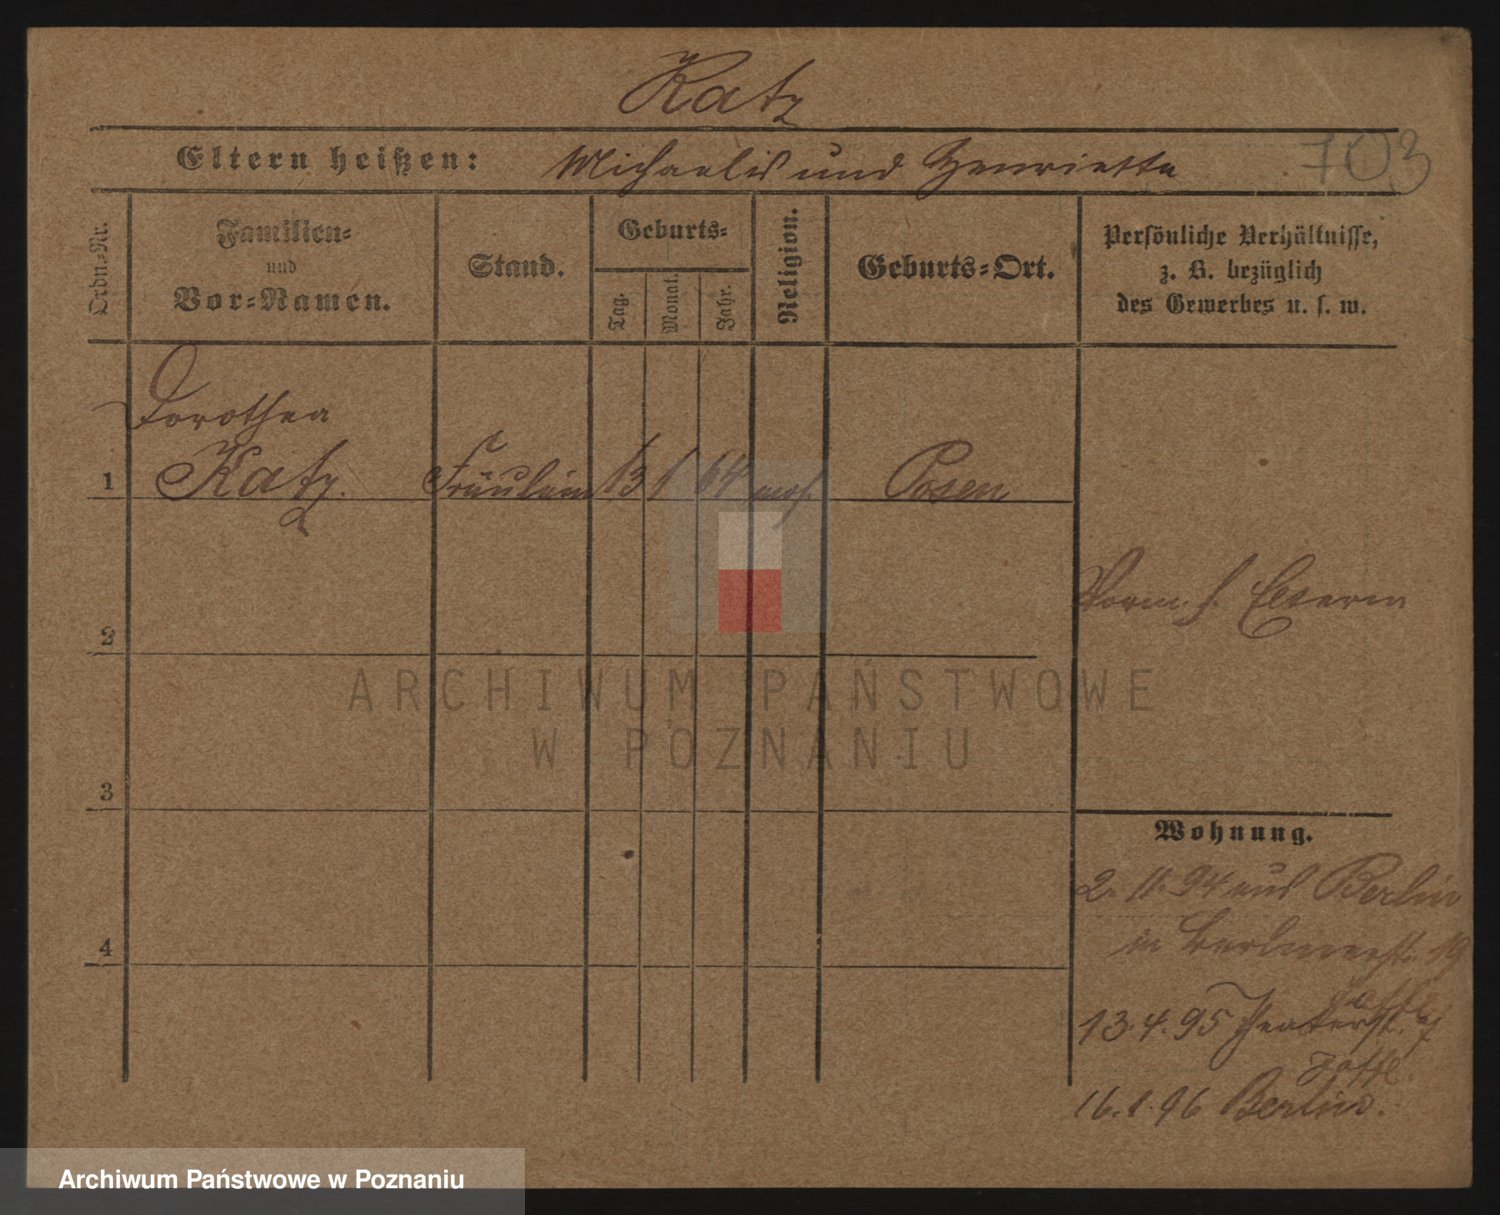 Katz
703
Eltern heißen: Michaelis und Henriette
Ordn.-Nr.
Familien-
und
Vor-Namen.
Stand.
Geburts-
Tag.
Monat.
Jahr.
Religion.
Geburts-Ort.
Persönliche Verhältnisse,
z. B. bezüglich
des Gewerbes u. s. w.
Dorothea
1 Katz. Fräulein 13 1 64 mos. Posen
2
3
4
Wohnung.
2. 11. 94 aus Berlin
in
13. 4. 95
16. 1. 96 Berlin.
ARCHIWUM PAŃSTWOWE
W POZNANIU
Archiwum Państwowe w Poznaniu